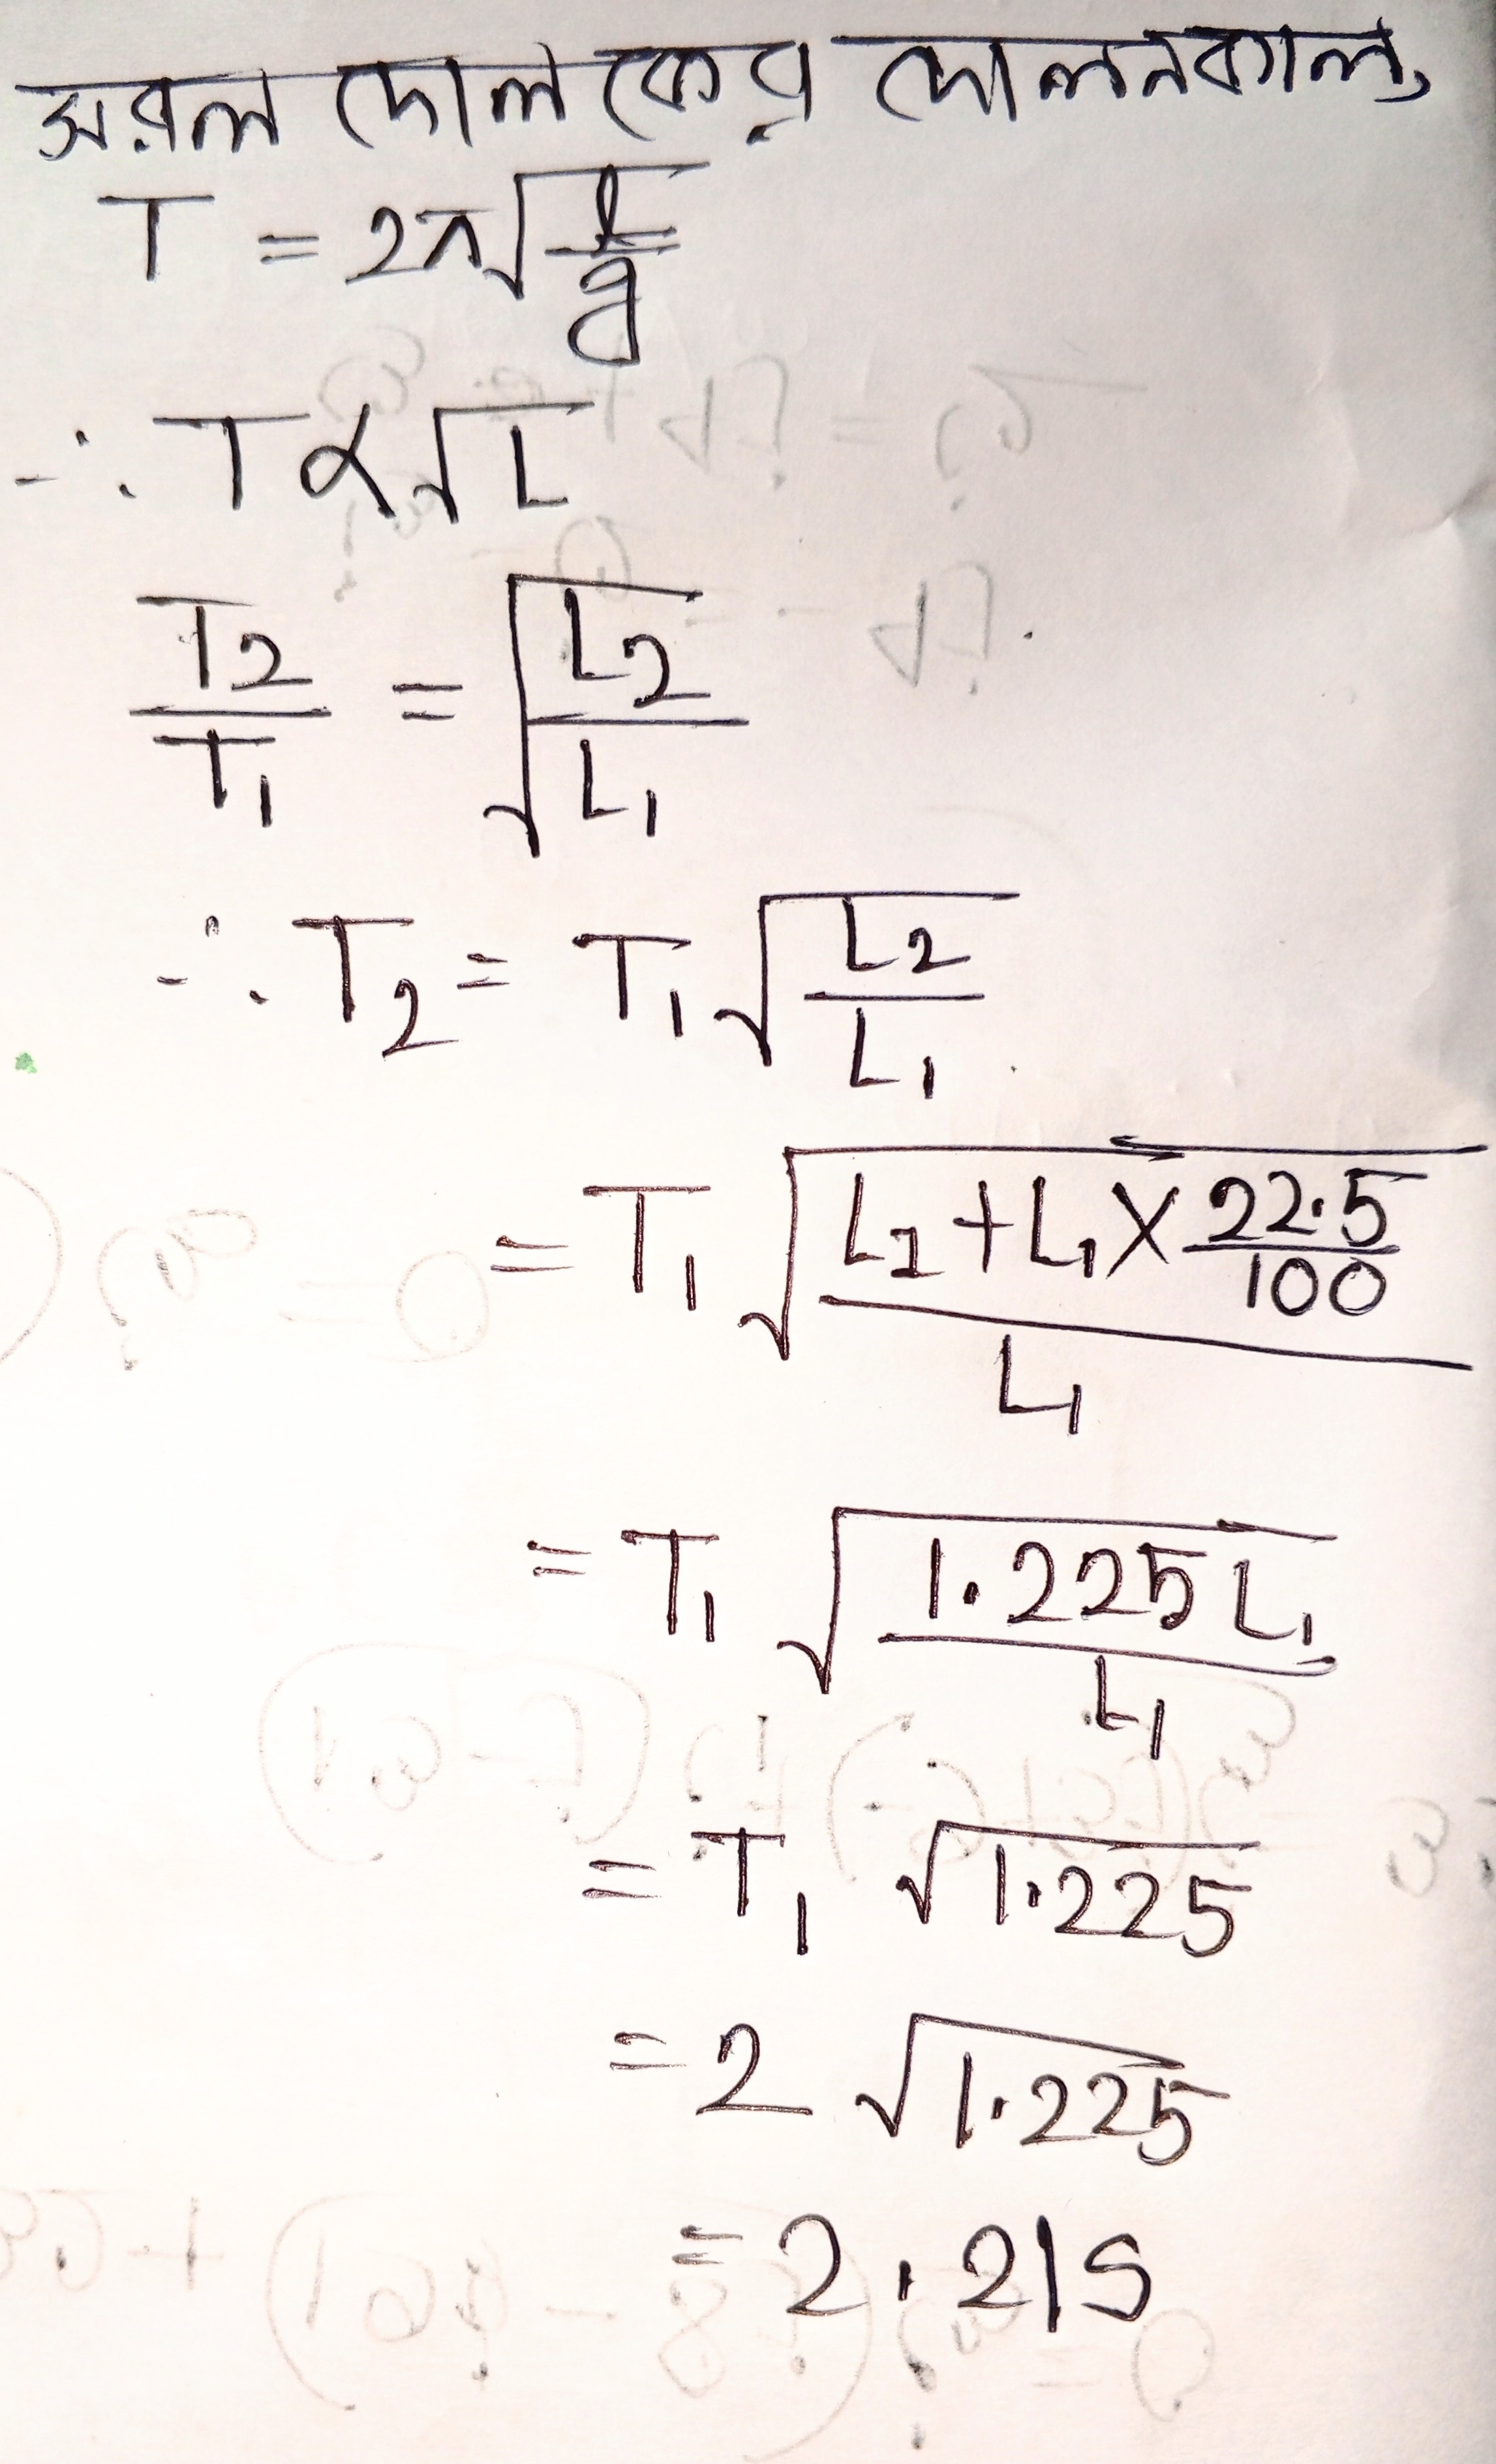 সরল দোলকের দোলনকাল,
T = 2π√(L/g)
∴ T ∝ √L
T₂/T₁ = √(L₂/L₁)
∴ T₂ = T₁√(L₂/L₁)
= T₁√((L₁+L₁×22.5/100)/L₁)
= T₁√(1.225L₁/L₁)
= T₁√1.225
= 2√1.225
= 2.21s